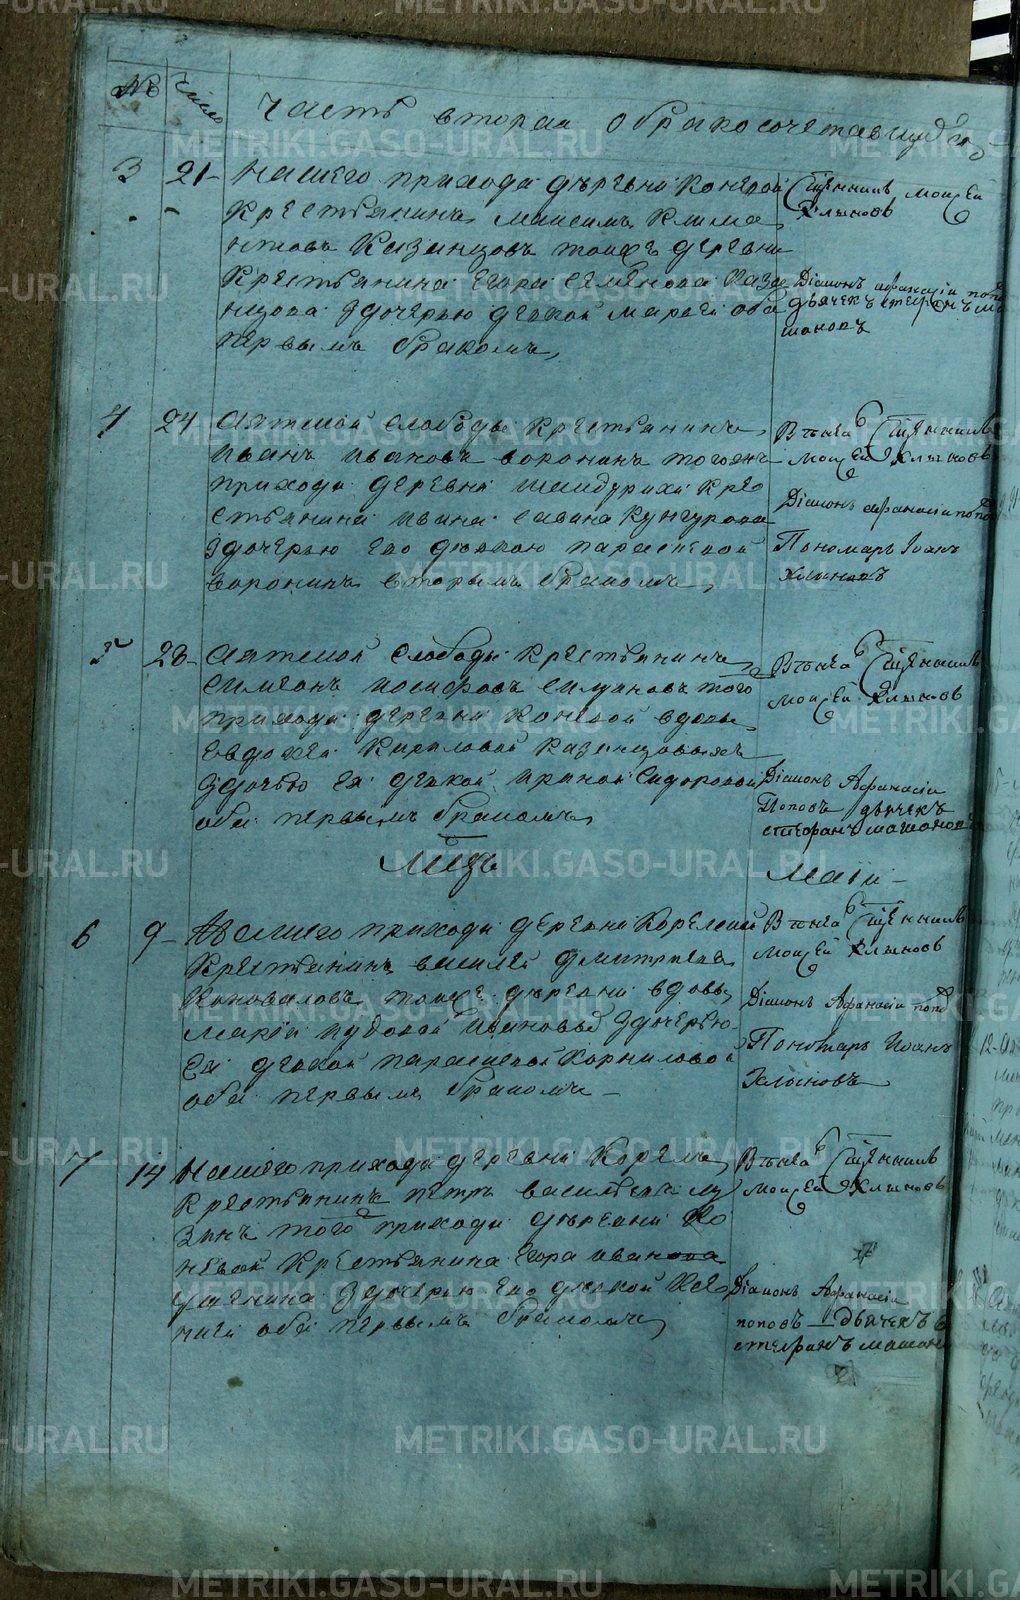 № число часть вторая о бракосочетавшихся
3 21 Нашего прихода деревни Коневой
крестьянинъ Максимъ Клима
нтовъ Казанцовъ тоежъ деревни
крестьянина Егора Семенова Каза
нцова здочерью девкой Марьей оба
первымъ бракомъ
Священникъ Моисей
Хлыновъ
Діаконъ Афанасіи попо
дьячекъ стефонъ ма
шановъ
4 24 Аятской слободы крестьянинъ
Иванъ Ивановъ Воронинъ тогожъ
прихода деревни Шайдурихи кре
стьянина Ивана Савина Кунгурова
здочерью ево девкою Параскевой
Воронинъ вторымъ бракомъ
Священникъ
Моисей Хлыновъ
Діаконъ Афанасіи попо
Пономарь Іоанъ
Хлыновъ
5 28 Аятской слободы крестьянинъ
Симеонъ Иосифовъ того
прихода деревни Коневой вдовы
Евдокеи Кириловой Казанцовыхъ
здочью ея девкой Ириной Сидоровой
оба первымъ бракомъ
Священникъ
Моисей Хлыновъ
Діаконъ Афанасіи
Поповъ дьячекъ
стефанъ машановъ
Маіи
6 9 Нашего прихода деревни Корелской
крестьянинъ Василей Дмитріевъ
Коноваловъ тоежъ деревни вдовы
Марьи Ивановы здочерью
ея девкой Параскевой Корниловой
оба первымъ бракомъ
Священникъ
Моисей Хлыновъ
Діаконъ Афанасіи попо
Пономарь Иоанъ
Хлыновъ
7 14 Нашего прихода деревни Корелъ
крестьянинъ Петръ Васильевъ Лу
зинъ того прихода деревни Ко
невой крестьянина Егора Иванова
Ушенина здочерью ево девкой Ксе
нией оба первымъ бракомъ
Священникъ
Моисей Хлыновъ
Діаконъ Афанасіи
поповъ дьячекъ
стефанъ машано
METRIKI.GASO-URAL.RU